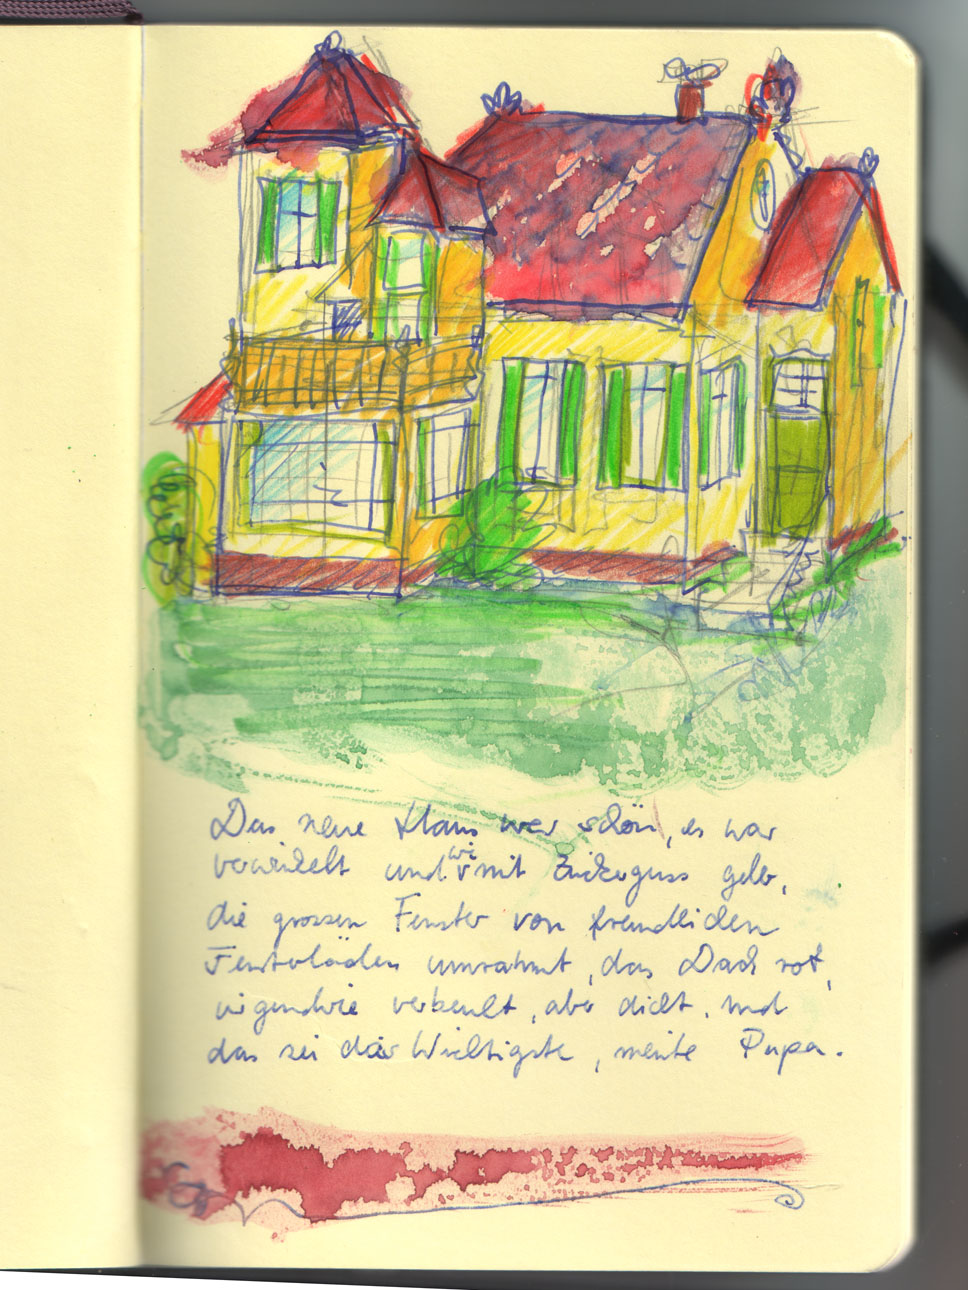 Das neue Haus war schön, es war
verwinkelt und wie mit Zuckerguss gelb,
die grossen Fenster von freundlichen
Fensterläden umrahmt, das Dach rot,
irgendwie verbeult, aber dicht, und
das sei das Wichtigste, meinte Papa.